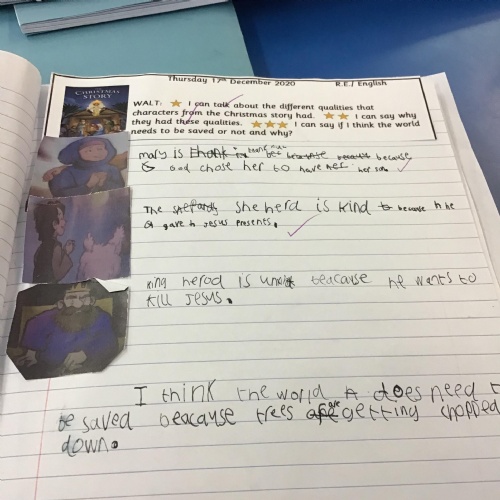 Thursday 17th December 2020 R.E./ English
THE CHRISTMAS STORY
WALT: I can talk about the different qualities that
characters from the Christmas story had. I can say why
they had these qualities. I can say if I think the world
needs to be saved or not and why?
mary is thankful because
God chose her to have her son
The sheherd is kind because he
gave Jesus presents.
king herod is unkind beacause he wants to
kill Jesus.
I think the world does need t
be saved beacause trees are getting chopped
down.